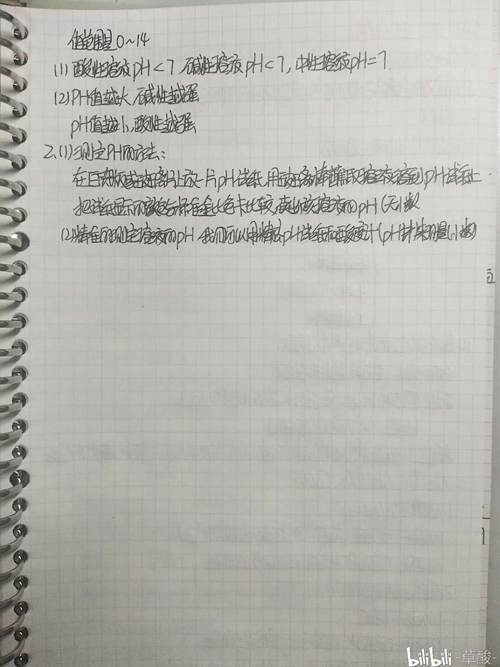 值范围 0~14
(1) 酸性溶液pH<7, 碱性溶液pH<7, 中性溶液pH=7
(2) PH值越大, 碱性越强
pH值越小, 酸性越强
2.(1)测定PH的方法:
在白瓷板或玻璃片上放一片pH试纸, 用玻璃棒蘸取溶液滴到pH试纸上
把试纸显示的颜色与标准比色卡比较, 读出该溶液的pH (无小数)
(2)精确的测定溶液的pH, 我们可以用精密pH试纸和酸度计(pH计来测量(小数)
bilibili-草酸-